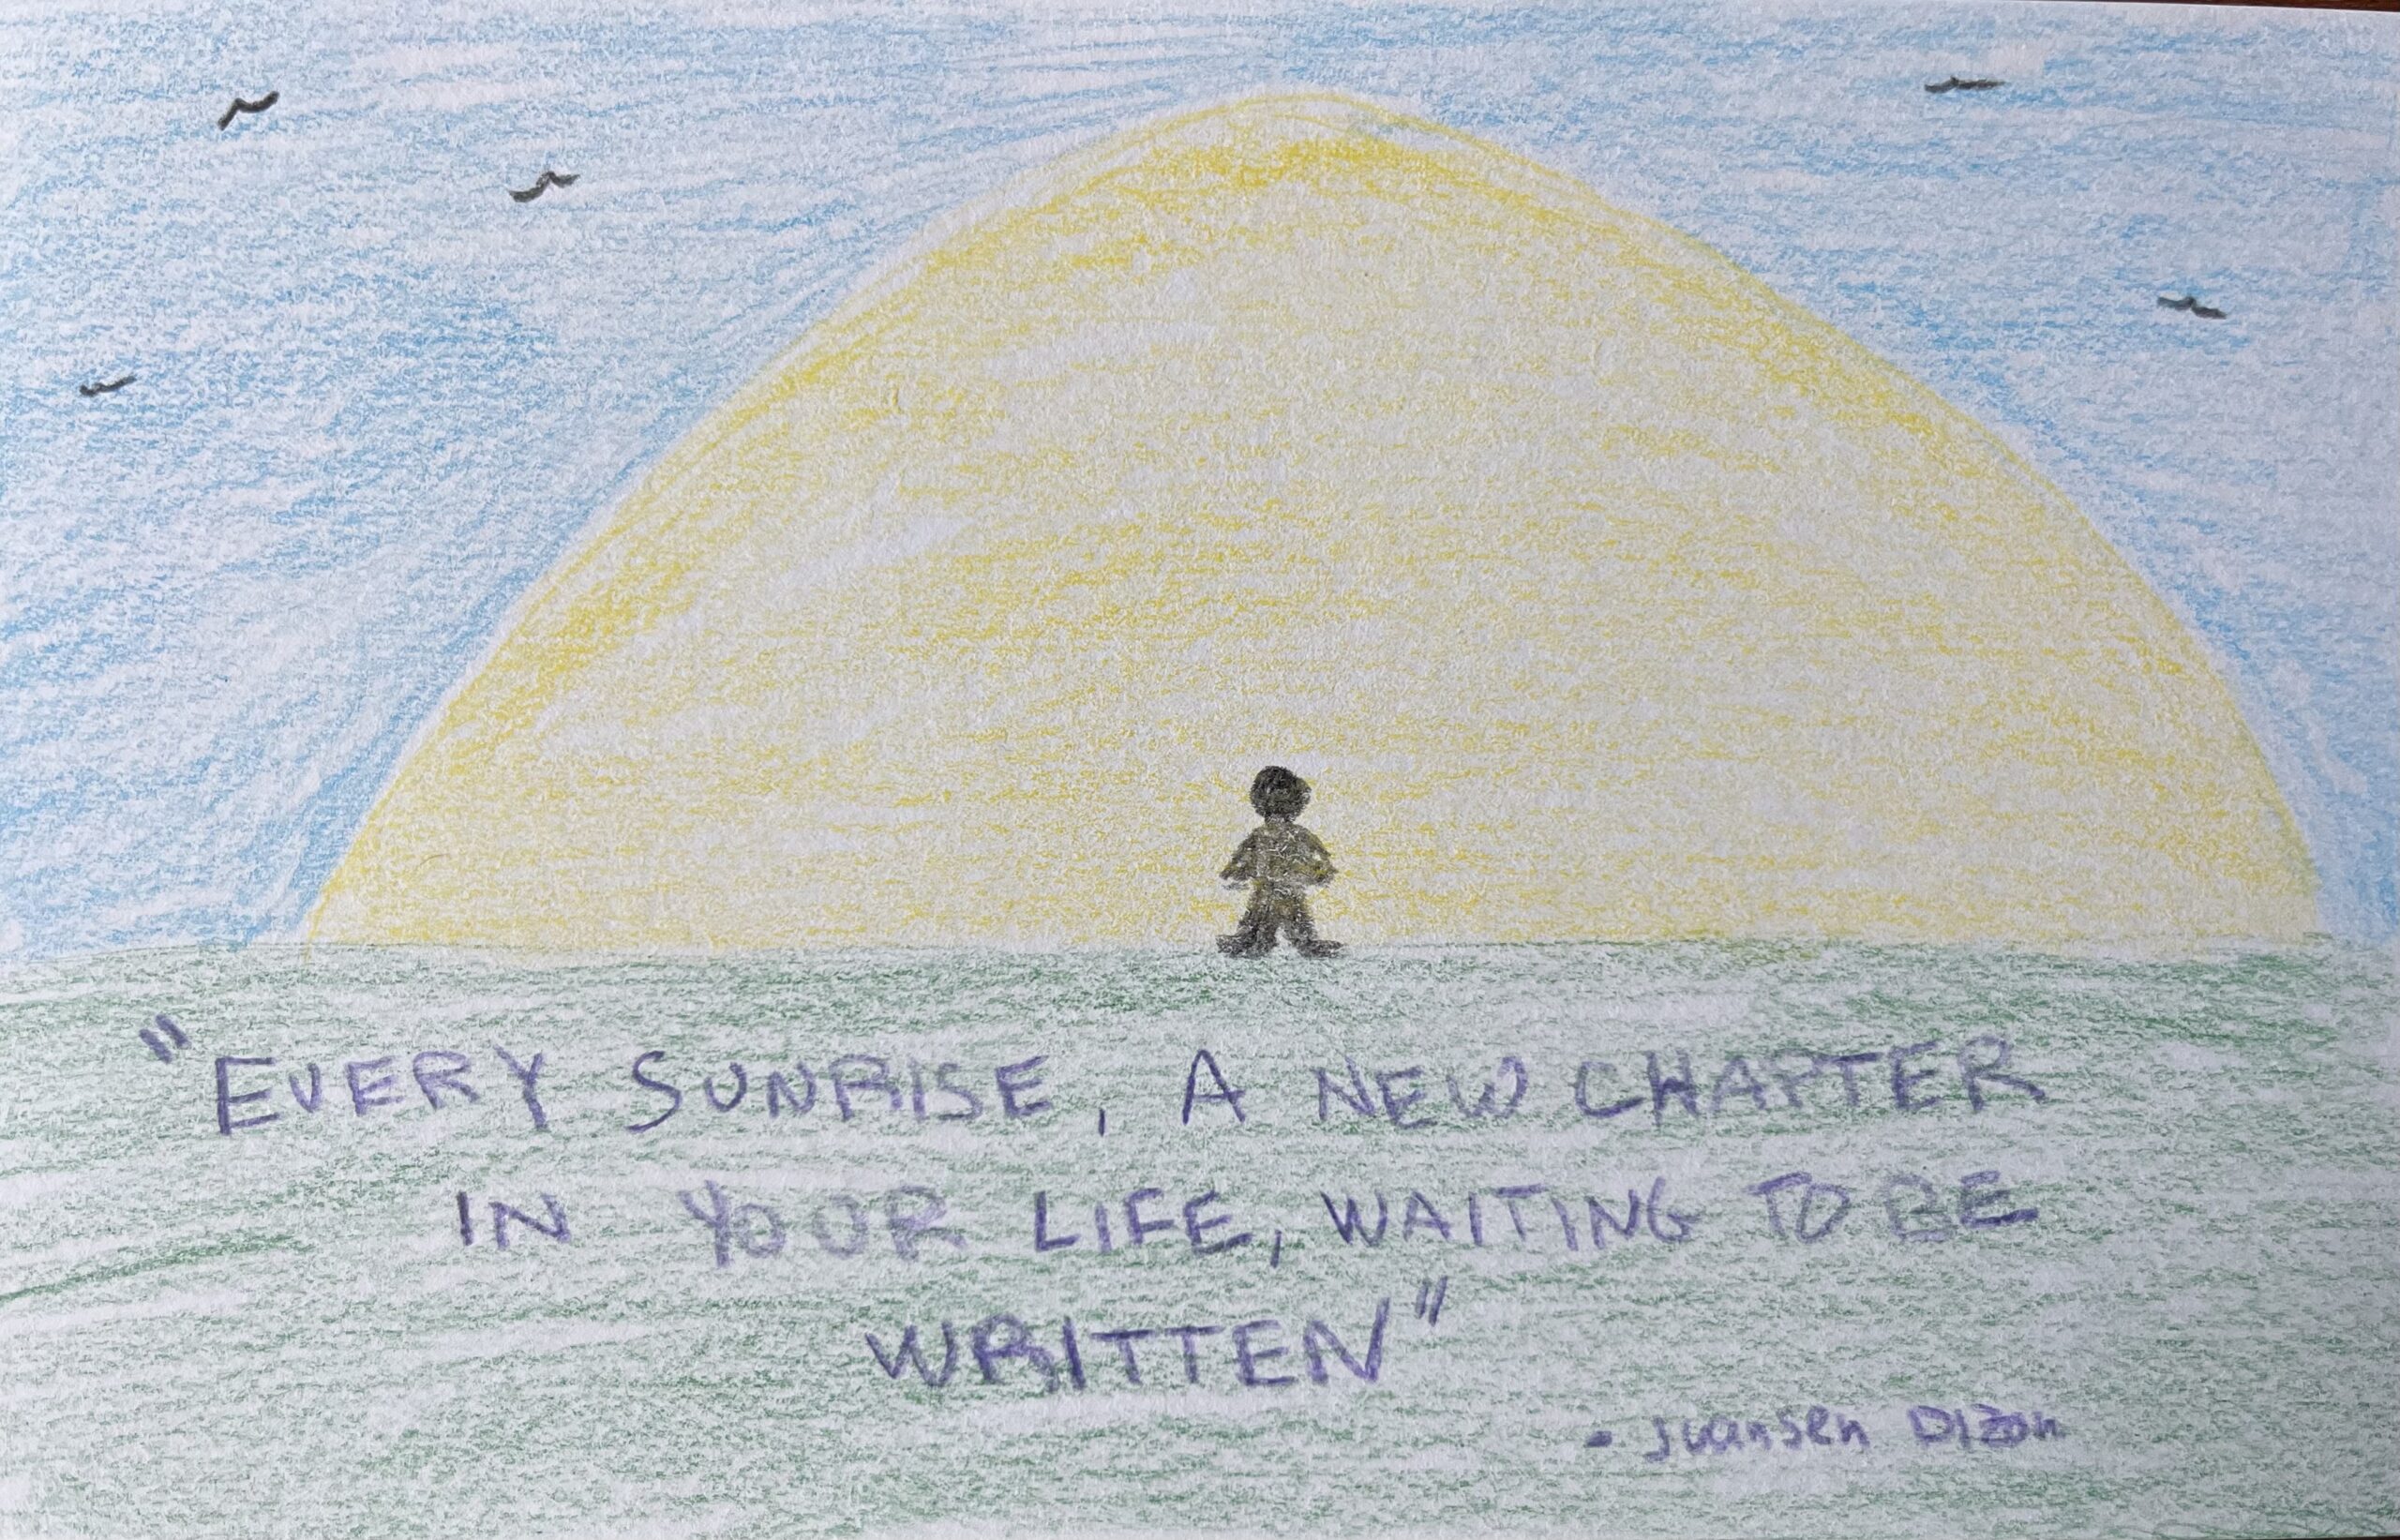 "EVERY SUNRISE, A NEW CHAPTER
IN YOUR LIFE, WAITING TO BE
WRITTEN"
- Juansen Dizon